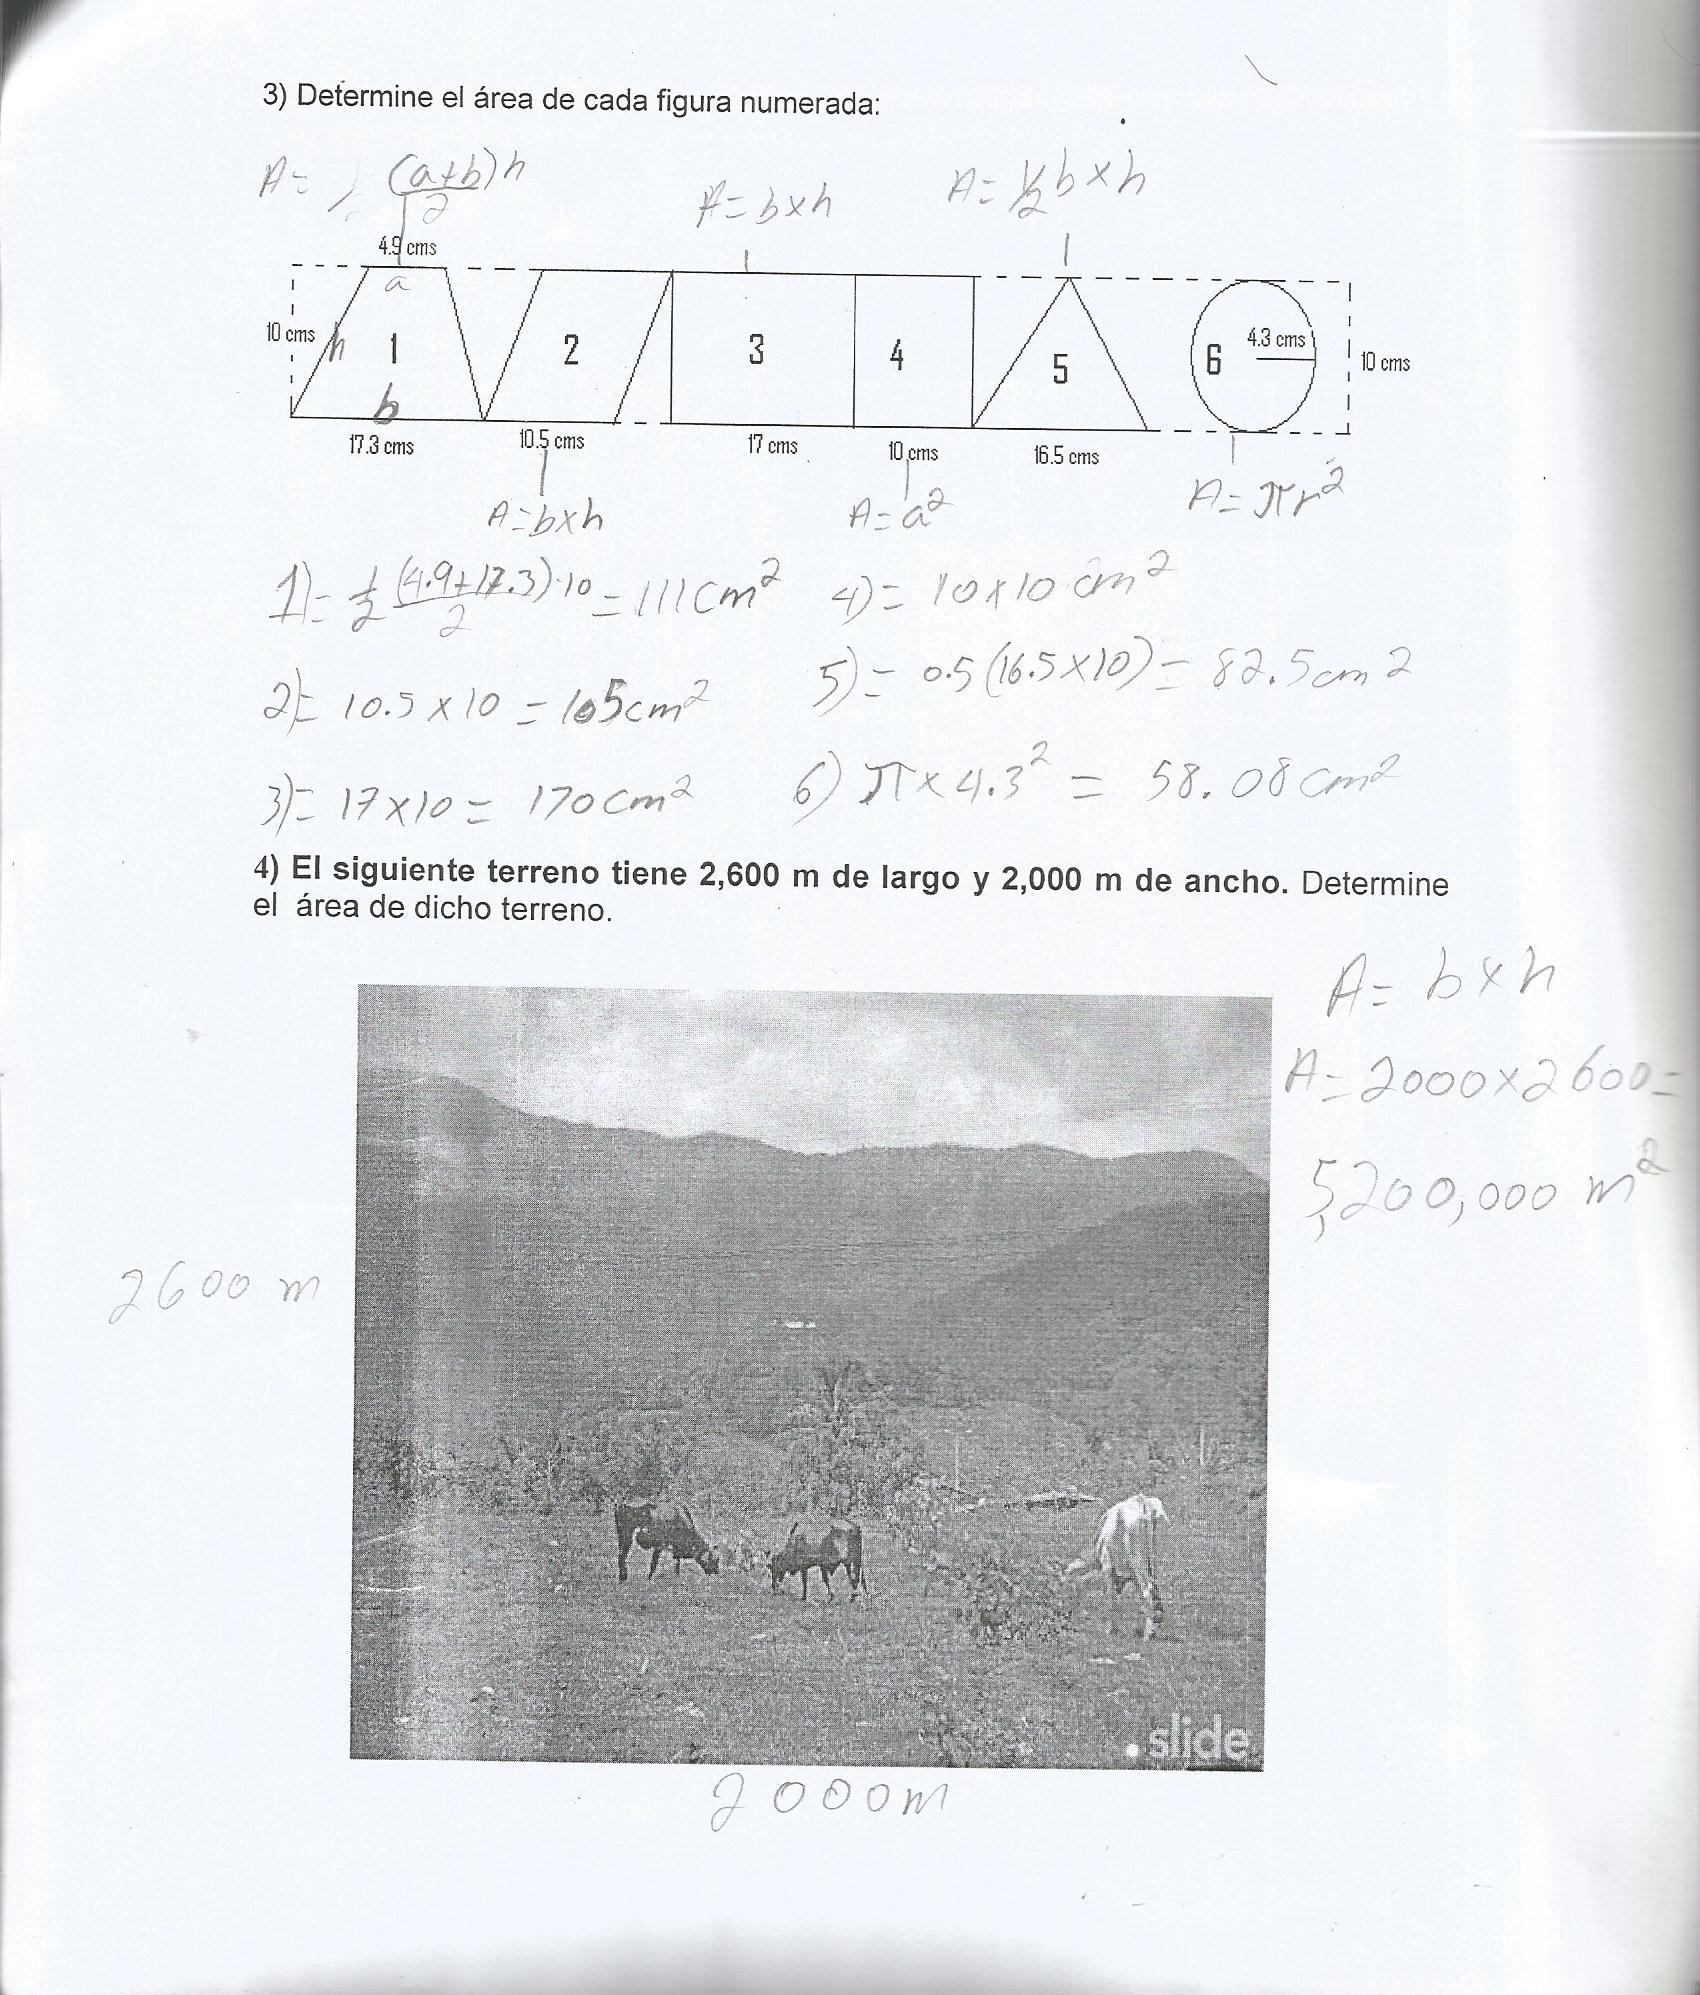 3) Determine el área de cada figura numerada:
A= (a+b)h
2
A=bxh
A=½bxh
4.9 cms
a
10 cms
h
1
b
2
3
4
5
6
4.3 cms
10 cms
17.3 cms
10.5 cms
17 cms
10 cms
16.5 cms
A=bxh
A=a²
A=πr²
1)= ½ (4.9+17.3)·10 = 111cm²
2
4)= 10x10 cm²
2)= 10.5x10 = 105cm²
5)= 0.5(16.5x10)= 82.5cm2
3)= 17x10= 170cm²
6) πx4.3² = 58.08cm²
4) El siguiente terreno tiene 2,600 m de largo y 2,000 m de ancho. Determine
el área de dicho terreno.
A= bxh
A=2000x2600=
5,200,000 m²
2600 m
.slide
2000m